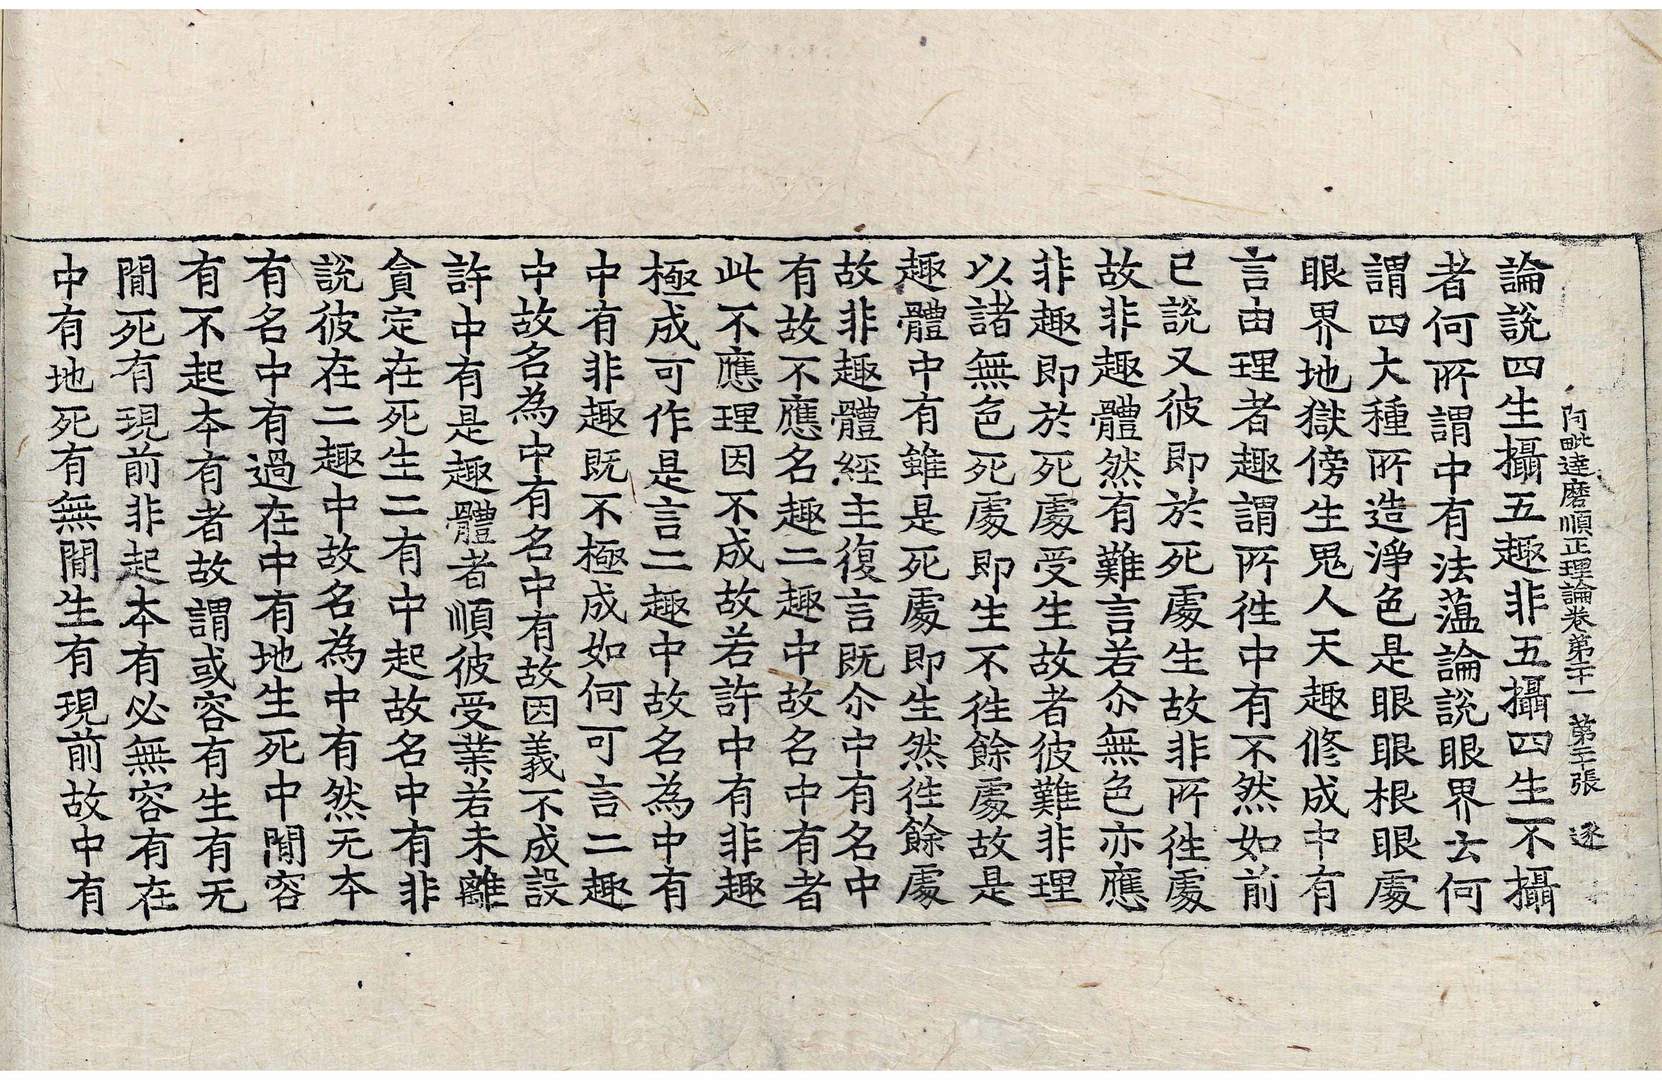 阿毗達磨順正理論卷第二十一 第二十張 逐
論說四生攝五趣非五攝四生不攝
者何所謂中有法蘊論說眼界云何
謂四大種所造淨色是眼眼根眼處
眼界地獄傍生鬼人天趣修成中有
言由理者趣謂所往中有不然如前
已說又彼即於死處生故非所往處
故非趣體然有難言若尒無色亦應
非趣即於死處受生故者彼難非理
以諸無色死處即生不往餘處故是
趣體中有雖是死處即生然往餘處
故非趣體經主復言既尒中有名中
有故不應名趣二趣中故名中有者
此不應理因不成故若許中有非趣
極成可作是言二趣中故名為中有
中有非趣既不極成如何可言二趣
中故名為中有名中有故因義不成設
許中有是趣體者順彼受業若未離
貪定在死生二有中起故名中有非
說彼在二趣中故名為中有然无本
有名中有過在中有地生死中閒容
有不起本有者故謂或容有生有无
閒死有現前非起本有必無容有在
中有地死有無閒生有現前故中有